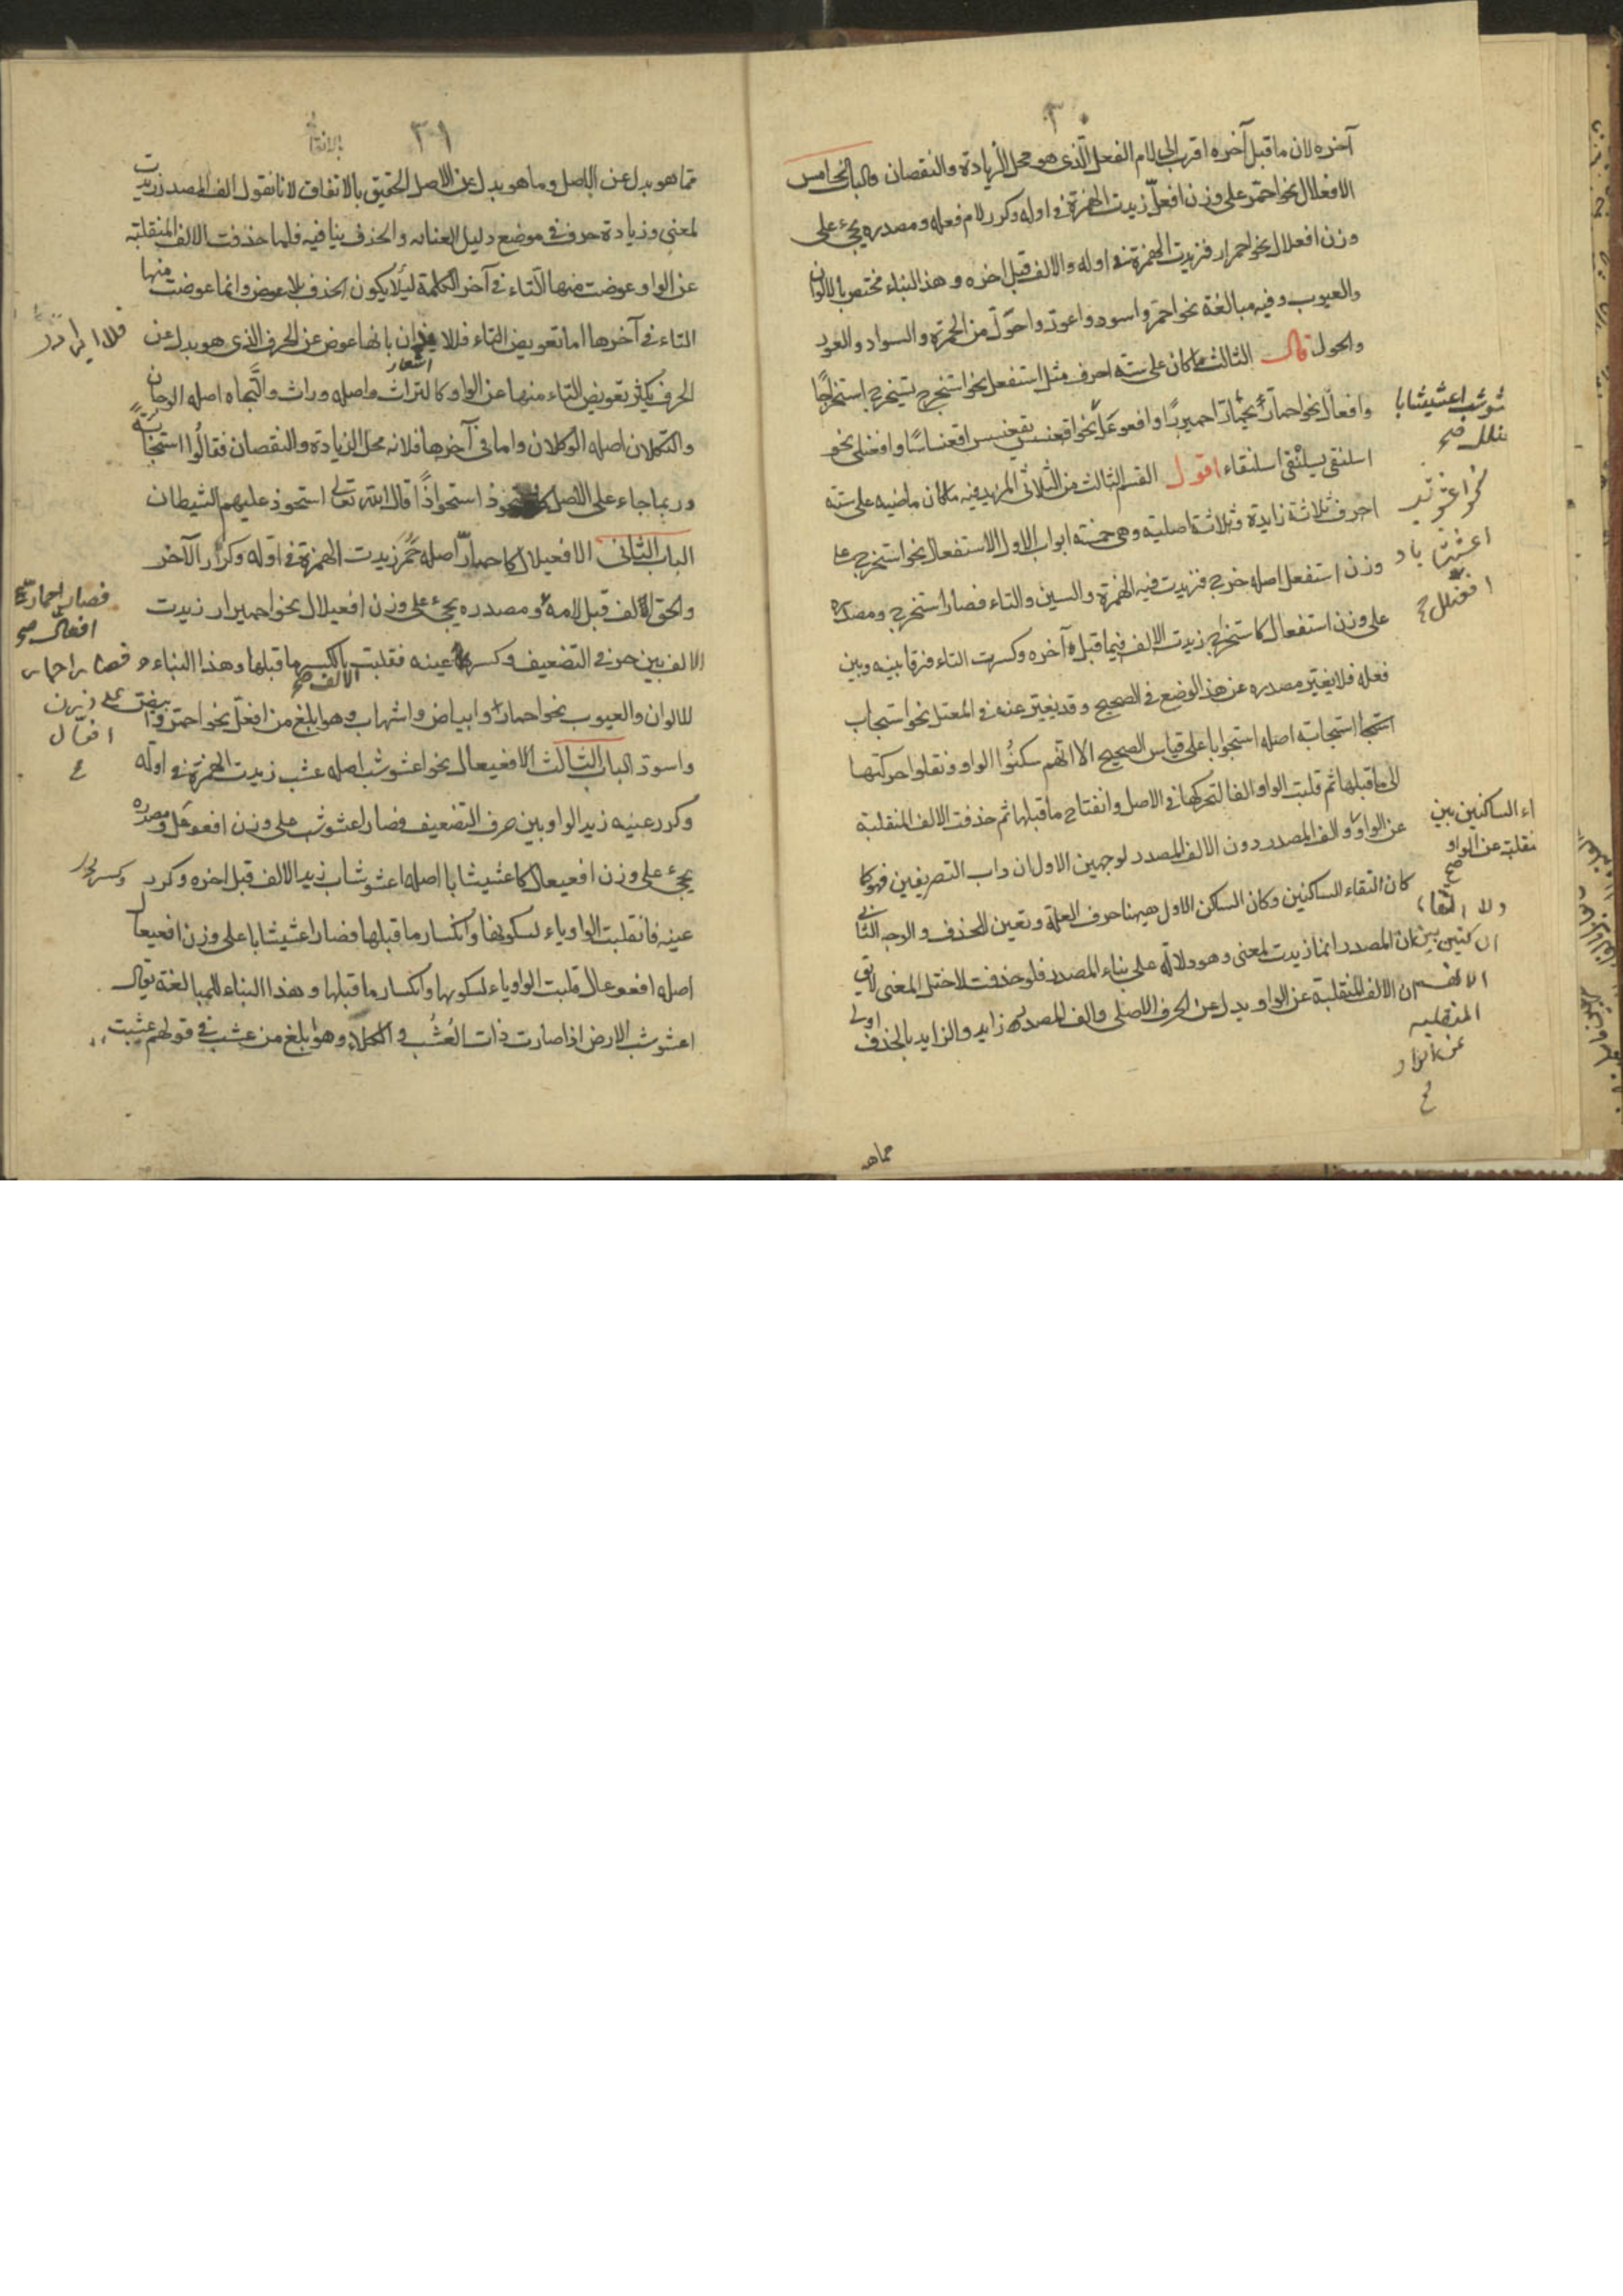 ٣٠
آخره لان ما قبل آخره اقرب الى لام الفعل الّذى هو محل الزيادة والنقصان والباب الخامس
الافعلال نحو احمرّ على وزن افعلّ زيدت الهمزة فى اوله وكرر لام فعله ومصدره يجىء على
وزن افعلال نحو احمرار فزيدت الهمزة فى اوله والالف قبل اخره وهذ البناء مختص بالالوان
والعيوب وفيه مبالغة نحو احمرّ واسود واعورّ واحولّ من الحمرة والسواد والعور
والحول قال الثالث ما كان على ستة احرف مثل استفعل نحو استخرج يستخرج استخراجًا
وافعالّ نحو احمارّ يحمارّ احميرارًا وافعوعل نحو وافعنلل نحو اقعنسس يقعنسس اقعنساسًا وافعنلى نحو
اسلنقى يسلنقى اسلنقاء اقول القسم الثالث من الثلاثى المزيد فيه ما كان ماضيه على ستة
احرف ثلاثة زايدة وثلاثة اصلية وهى خمسة ابواب الاول الاستفعال نحو استخرج على
وزن استفعل اصله خرج فزيدت فيه الهمزة والسين والتاء فصار استخرج ومصدره
على وزن استفعال كاستخراج زيدت الالف فيما قبل آخره وكسرت التاء فرقا بينه وبين
فعله فلا يغيّر مصدره عن هذ الوضع فى الصحيح وقد يغيّر عنه فى المعتل نحو استجاب
استجابة اصله استجوابا على قياس الصحيح الا انّهم سكنُوا الواو ونقلوا حركتها
الى ما قبلها ثم قلبت الواو الفا لتحركها فى الاصل وانفتاح ما قبلها ثم حذفت الالف المنقلبة
عن الواو والف المصدر دون الالف المصدر لوجهين الاول ان داب التصريفين فهو كا
كان التقاء الساكنين وكان الساكن الاول هيهنا حرف العلة وتعين للحذف والوجه الثانى
ان المصدر انما زيدت لمعنى وهو دلالة على بناء المصدر فلو حذفت لاختل المعنى
ان الالف المنقلبة عن الواو بدل عن الحرف الاصلى والف المصدر زايد والزايد بالحذف اولى
شوشب اعشيشابا
اء الساكنين بين
نقلبة عن الواو
صح
ولا التقاء
المنقلبه
عن الواو
مما هو
٣١
مما هو بدل عن الاصل وما هو بدل عن الاصل الحقيق بالاتفاق لانا نقول الف المصدر زيدت
لمعنى وزيادة حرف فى موضع دليل العناية والحذف ينافيه فلما حذفت الالف المنقلبة
عن الواو عوضت منها التاء فى آخر الكلمة ليلّا يكون الحذف بلا عوض وانما عوضت منها
التاء فى آخرها اما تعويض التاء فللا بانها عوض عن الحرف الذى هو بدل عن
اشعار
الحرف يكثر تعويض التاء منها عن الواو كالتراث واصله وراث والتّجاه اصله الوجاه
والتكلان اصله الوكلان واما فى آخرها فلانه محل الزيادة والنقصان فقالُوا استجابة
وربما جاء على الاصل استحوذ استحواذًا قال الله تعالى استحوذ عليهم الشيطان
الباب الثانى الافعيلال كاحمارّ اصله حَمُر زيدت الهمزة فى اوله وكرّر الآخر
والحق الالف قبل لامه ومصدره يجىء على وزن افعيلال نحو احميرار زيدت
الالف بين حرفى التضعيف وكسر عينه فقلبت الالف ما قبلها وهذا البناء
للالوان والعيوب نحو احمارّ وابياض واشهاب وهو ابلغ من افعلّ نحو احمرّ
واسودّ الباب الثالث الافعيعال نحو اعشوشب اصله عشب زيدت الهمزة فى اوله
وكرر عينه زيد الواو بين حرف التضعيف فصار اعشوشب على وزن افعوعل ومصدره
يجىء على وزن افعيعال كاعشيشابا اصله اعشوشاب زيد الالف قبل اخره وكرر
عينه فانقلبت الواو ياء لسكونها وانكسار ما قبلها فصار اعشيشابا على وزن افعيعال
اصله افعوعال قلبت الواو ياء لسكونها وانكسار ما قبلها وهذا البناء للمبالغة يقال
اعشوشب الارض اذا صارت ذات العُشُب والكلاء وهو ابلغ من عشب فى قولهم عشبت
فصار احمارّ
افعالّ صح
على وزن
افعالّ